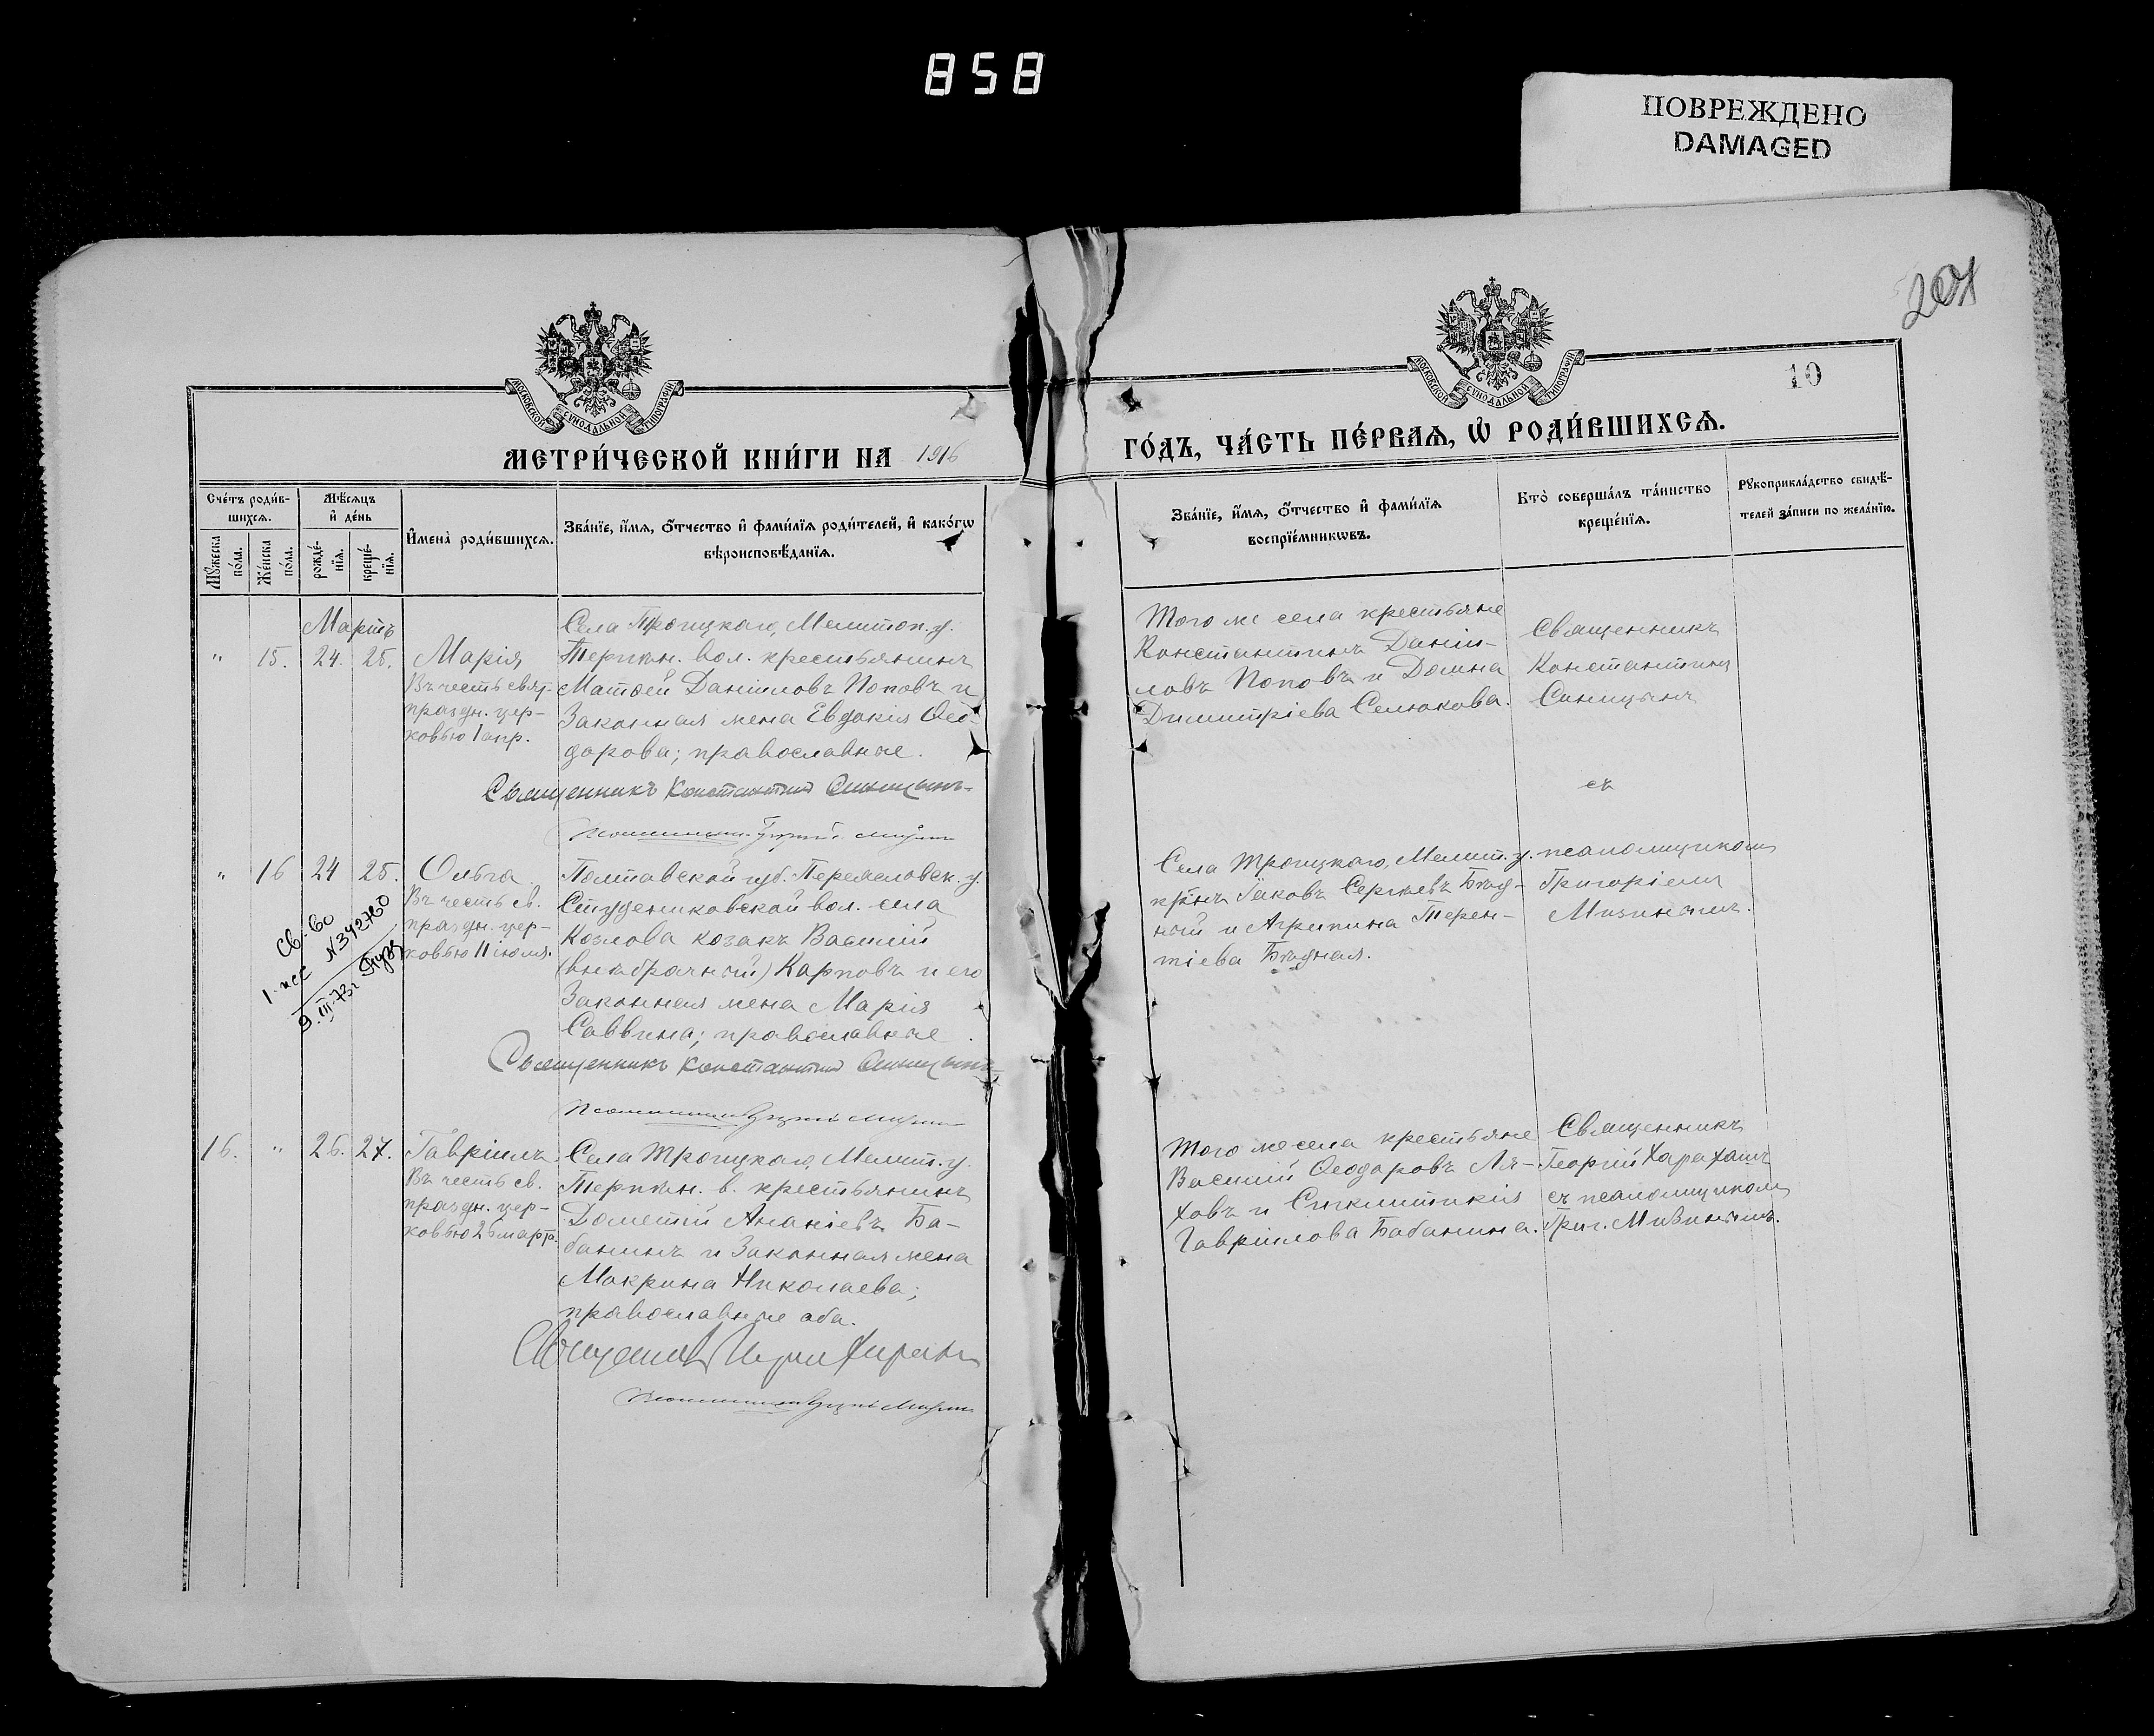 858
ПОВРЕЖДЕНО
DAMAGED
204
10
МОСКОВСКОЙ СѴНОДАЛЬНОЙ ТИПОГРАФІИ
МОСКОВСКОЙ СѴНОДАЛЬНОЙ ТИПОГРАФІИ
МЕТРИ́ЧЕСКОЙ КНИ́ГИ НА 1916
ГО́ДЪ, ЧА́СТЬ ПЕ́РВАѦ, Ѡ РОДИ́ВШИХСѦ.
Сче́тъ роди́в-
шихсѧ.
Мѣ́сѧцъ
и҆ де́нь
Мꙋ́жеска
по́ла.
Же́нска
по́ла.
рожде́-
нїѧ.
креще́-
нїѧ.
И҆мена̀ роди́вшихсѧ.
Зва́нїе, и҆́мѧ, ѻ҆́тчество и҆ фами́лїѧ роди́телей, и҆ како́гѡ
вѣроисповѣ́данїѧ.
Зва́нїе, и҆́мѧ, ѻ҆́тчество и҆ фами́лїѧ
воспрїе́мникѡвъ.
Кто̀ соверша́лъ та́инство
креще́нїѧ.
Рꙋкоприкла́дство свидѣ́-
телей за́писи по жела́нїю.
Мартъ
" 15. 24. 25. Марія
Въ честь свят.
праздн. цер-
ковью 1 апр.
Села Троицкаго, Мелитоп. у.
Терпѣн. вол. крестьянинъ
Матѳей Даніиловъ Поповъ и
Законная жена Евдокія Ѳео-
дорова; православные.
Священникъ Константинъ Синицынъ
Того же села крестьяне
Константинъ Даніи-
ловъ Поповъ и Домна
Димитріева Селюкова.
Священникъ
Константинъ
Синицынъ
съ
псаломщикомъ
Григоріемъ
Мизинымъ.
" 16 24 25. Ольга
Въ честь св.
праздн. цер-
ковью 11 іюля.
Св-во
1-нсс N342760
9.III-73г
Полтавской губ. Переясловск. у.
Студениковской вол. села
Козлова козакъ Василій
(внѣбрачный) Карповъ и его
Законная жена Марія
Саввина; православные
Священникъ Константинъ Синицынъ
Села Троицкаго, Мелит. у.
кр-нъ Іаковъ Сергѣевъ Бѣд-
ный и Агрипина Терен-
тіева Бѣдная.
16. " 26. 27. Гавріилъ
Въ честь св.
праздн. цер-
ковью 26 март.
Села Троицкаго, Мелит. у.
Терпѣн. в. крестьянинъ
Дометій Ананіевъ Ба-
банинъ и Законная жена
Макрина Николаева;
православные оба.
Того же села крестьяне
Василій Ѳеодоровъ Ля-
ховъ и Синклитикія
Гавріилова Бабанина.
Священникъ
Георгій Харахашъ
съ псаломщикомъ
Григ. Мизинымъ.